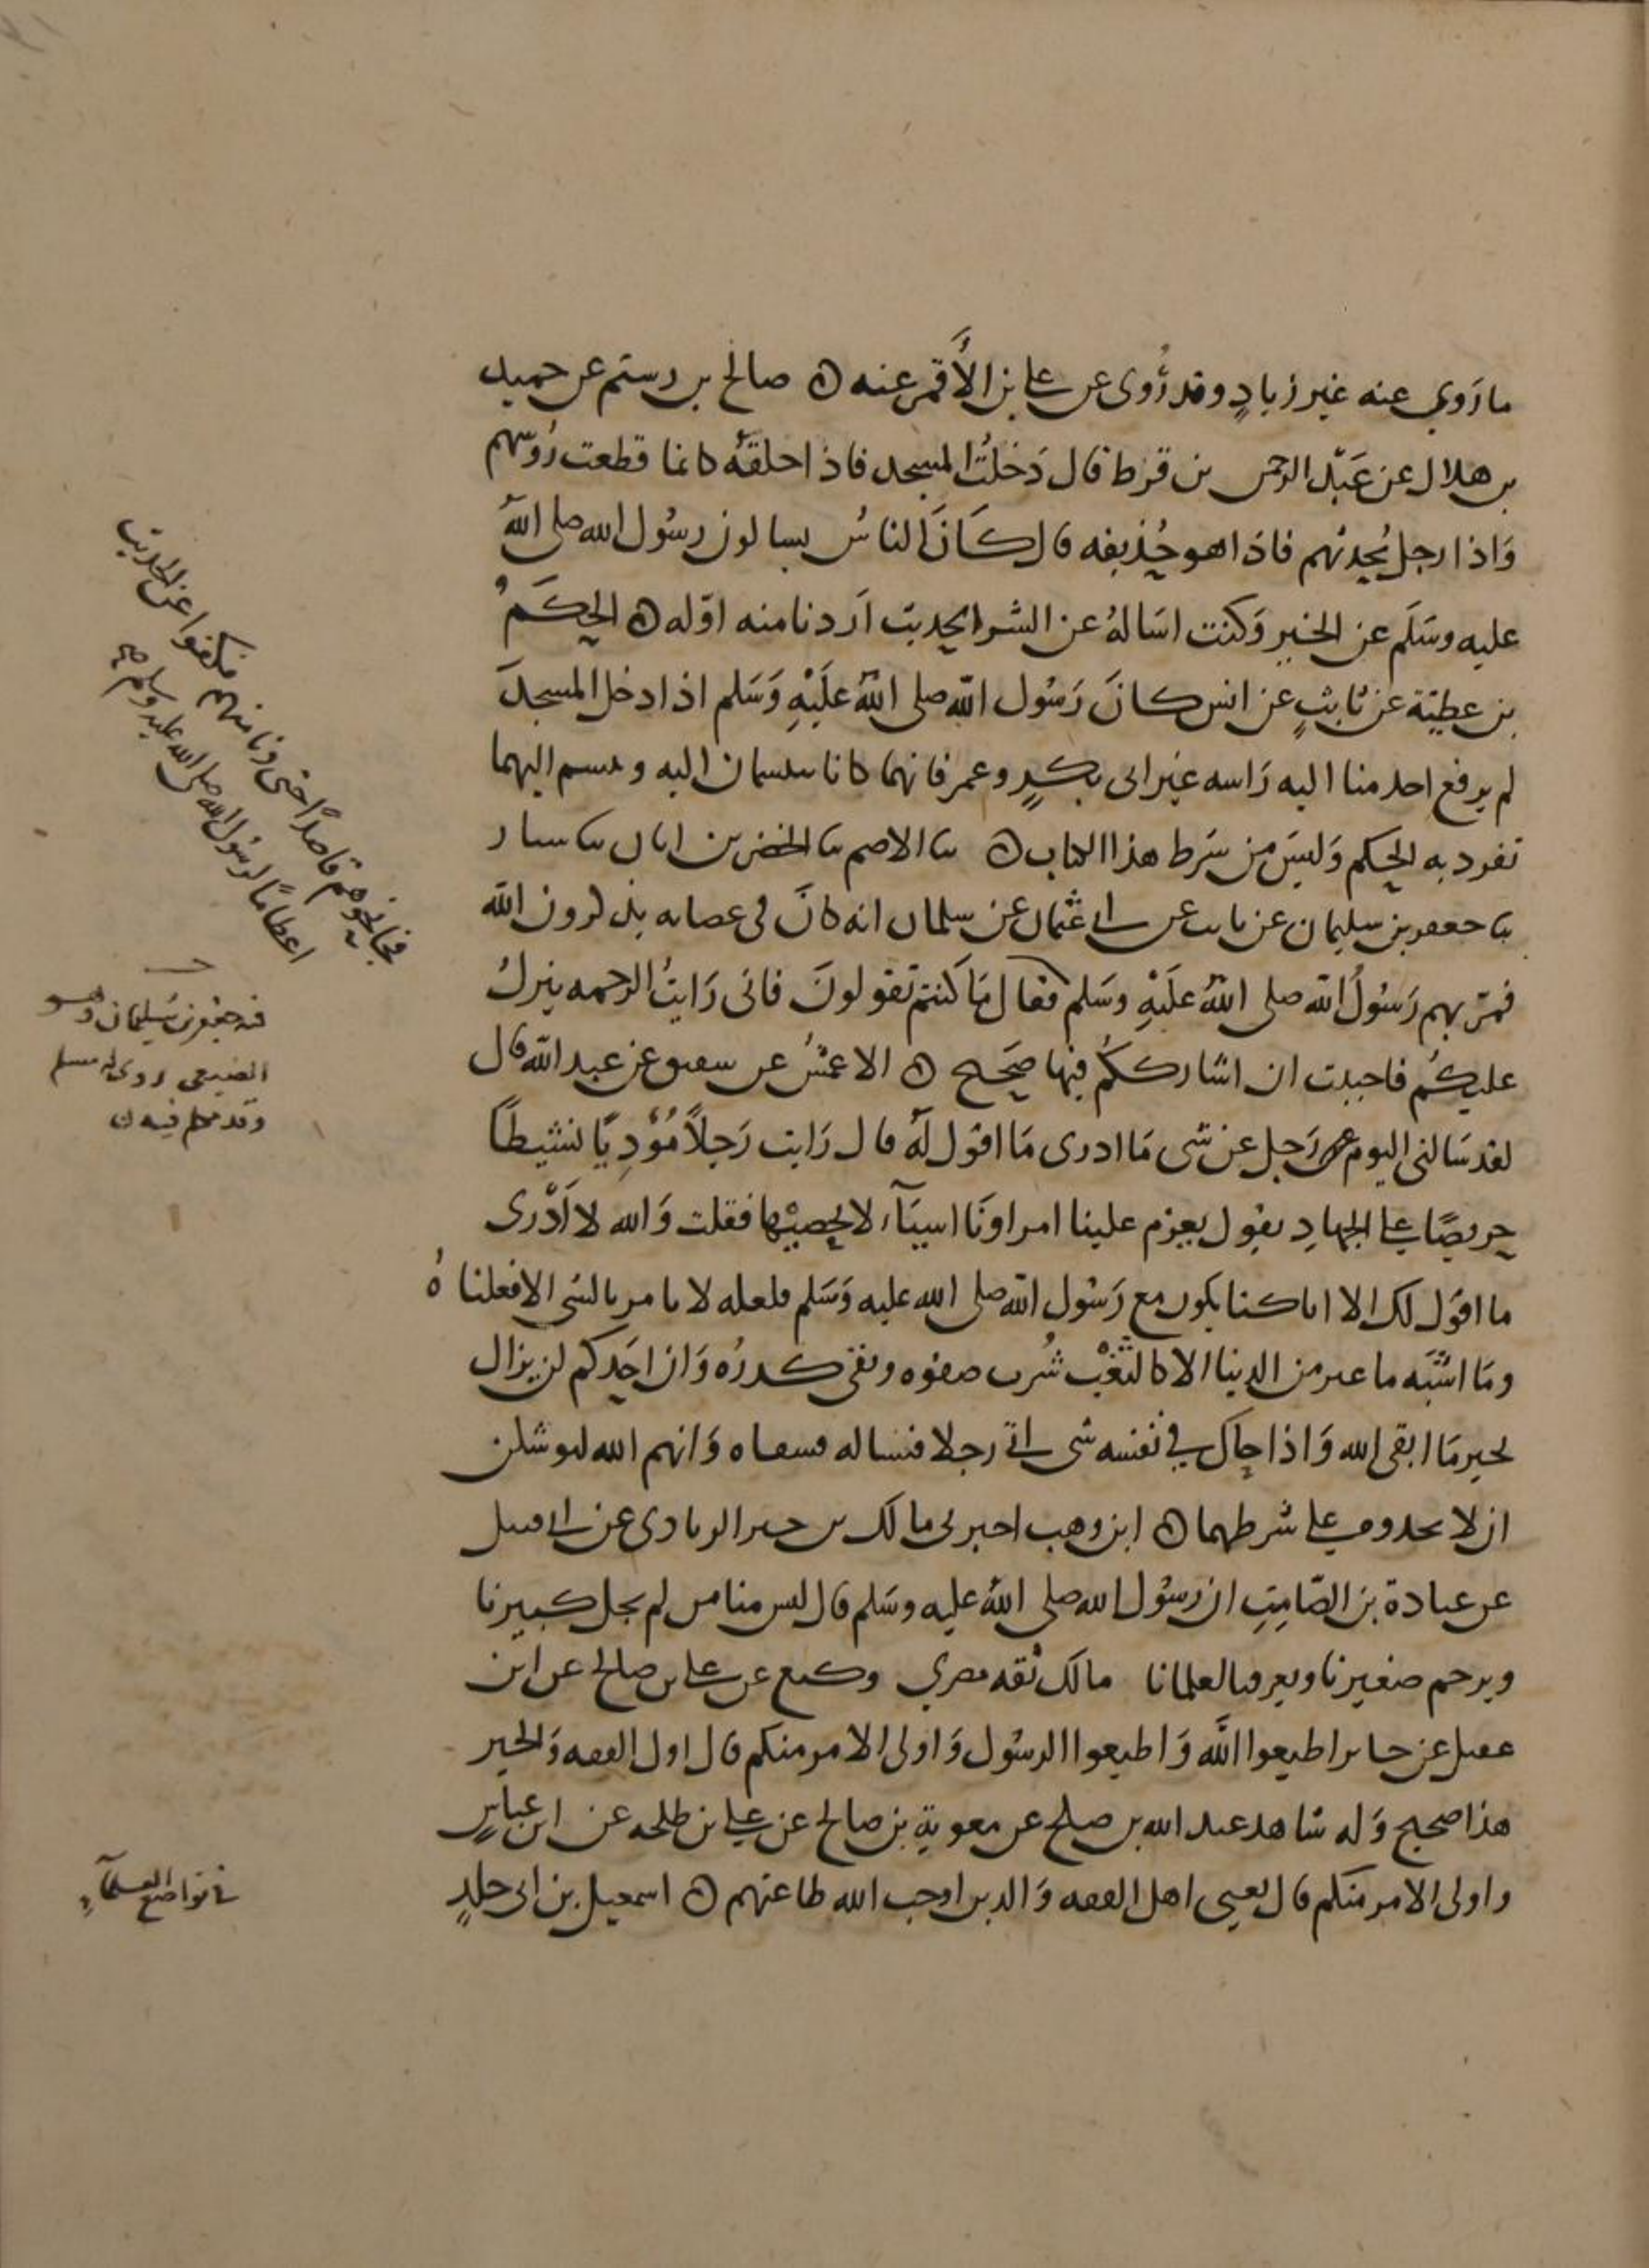 ما رَوى عنه غير زيادٍ وقد رُوى عن على بن الأَقمر عنه ه صالح بن رستم عن حميد
بن هلال عن عَبْد الرحمن بن قرط قال دَخلتُ المسجد فاذا حلقةٌ كانما قطعت رُوسهم
وَاذا رجل يُحدثهم فاذا هو حُذيفه قال كَانَ الناسُ يسالون رسُول الله صلى اللهُ
عليه وسَلَم عن الخيرِ وَكنت اسَالهُ عن الشر الحديث اَردنا منه اوّله ه الحكَمُ
بن عطيّة عن ثابتٍ عن انس كانَ رَسُول اللّه صلى اللهُ عَلَيْهِ وَسَلم اذا دخل المسجدَ
لم يرفع احد منا اليه رَاسه غير ابى بكرٍ وعمر فانهما كانا يتبسمان اليه وتبسم اليهما
تفرد به الحكم وَليسَ من شَرط هذا الكتاب ه ثنا الاصم ثنا الخضر بن ابان ثنا سيار
ثنا جعفر بن سليمان عن ثابت عن ابى عثمان عن سلمان انه كانَ فى عصابه يذكرون الله
فمرّ بهم رَسُولُ الله صلى اللهُ عَلَيْهِ وسَلم فقال مَا كنتم تقولونَ فانى رَايتُ الرحمه تنزلُ
عليكُم فاحببت ان اشارككُم فيها صَحيح ه الاعمشُ عن شقيق عن عبد الله قال
لقد سَالنى اليوم رَجل عن شى مَا ادرى مَا اقول لَهُ قال رَايت رَجلاً مُؤدِيًا نشيطًا
حريصًا على الجهادِ يقول يعزم علينا امراونَا اشيَآء لا نحصيْها فقلت وَالله لا اَدْرى
ما اقول لك الا انا كنا نكون مع رَسُول الله صلى الله عليه وَسَلم فلعله لا يامر بالشى الا فعلناهُ
ومَا اشْبَه ما غبر من الدنيا الا كالثغْب شُرب صفوه وبقى كدرُه وَان احَدكم لن يزال
بخير مَا اتقى الله وَاذا حاك فى نفسه شى اتى رجلا فساله فشفاه وَايم الله ليوشكن
ان لا تجدوه على شرطهما ه ابن وهب اخبرنى مالك بن خير الزبادى عن ابى قبيل
عن عبادة بن الصّامِتِ ان رسُول الله صلى اللهُ عليه وسَلم قال ليس منا من لم يجل كبيرنا
ويرحم صغيرنا ويعرف لعلمانا مالك ثقه مصرى وكيع عن على بن صالح عن ابن
عقيل عن جابر اطيعوا اللَّه وَاطيعوا الرسُول وَاولى الامر منكم قال اولى الفقه وَالخير
هذا صحيح وَله شاهد عبد الله بن صلح عن معوية بن صالح عن على بن طلحه عن ابن عباسٍ
واولى الامر منكم قال يعنى اهل الفقه وَالدين اوجب الله طاعتهم ه اسمعيل بن ابى خلدٍ
فجا نحوهم قاصدًا حتى دنا منهم فكفوا عن الحديث
اعظامًا لرسُول الله صلى الله عليه وسلم صح
فيه جعفر بن سُليمان وهو
الضبعى روى له مسلم
وقد تكلم فيه ن
تواضع العلمآءِ